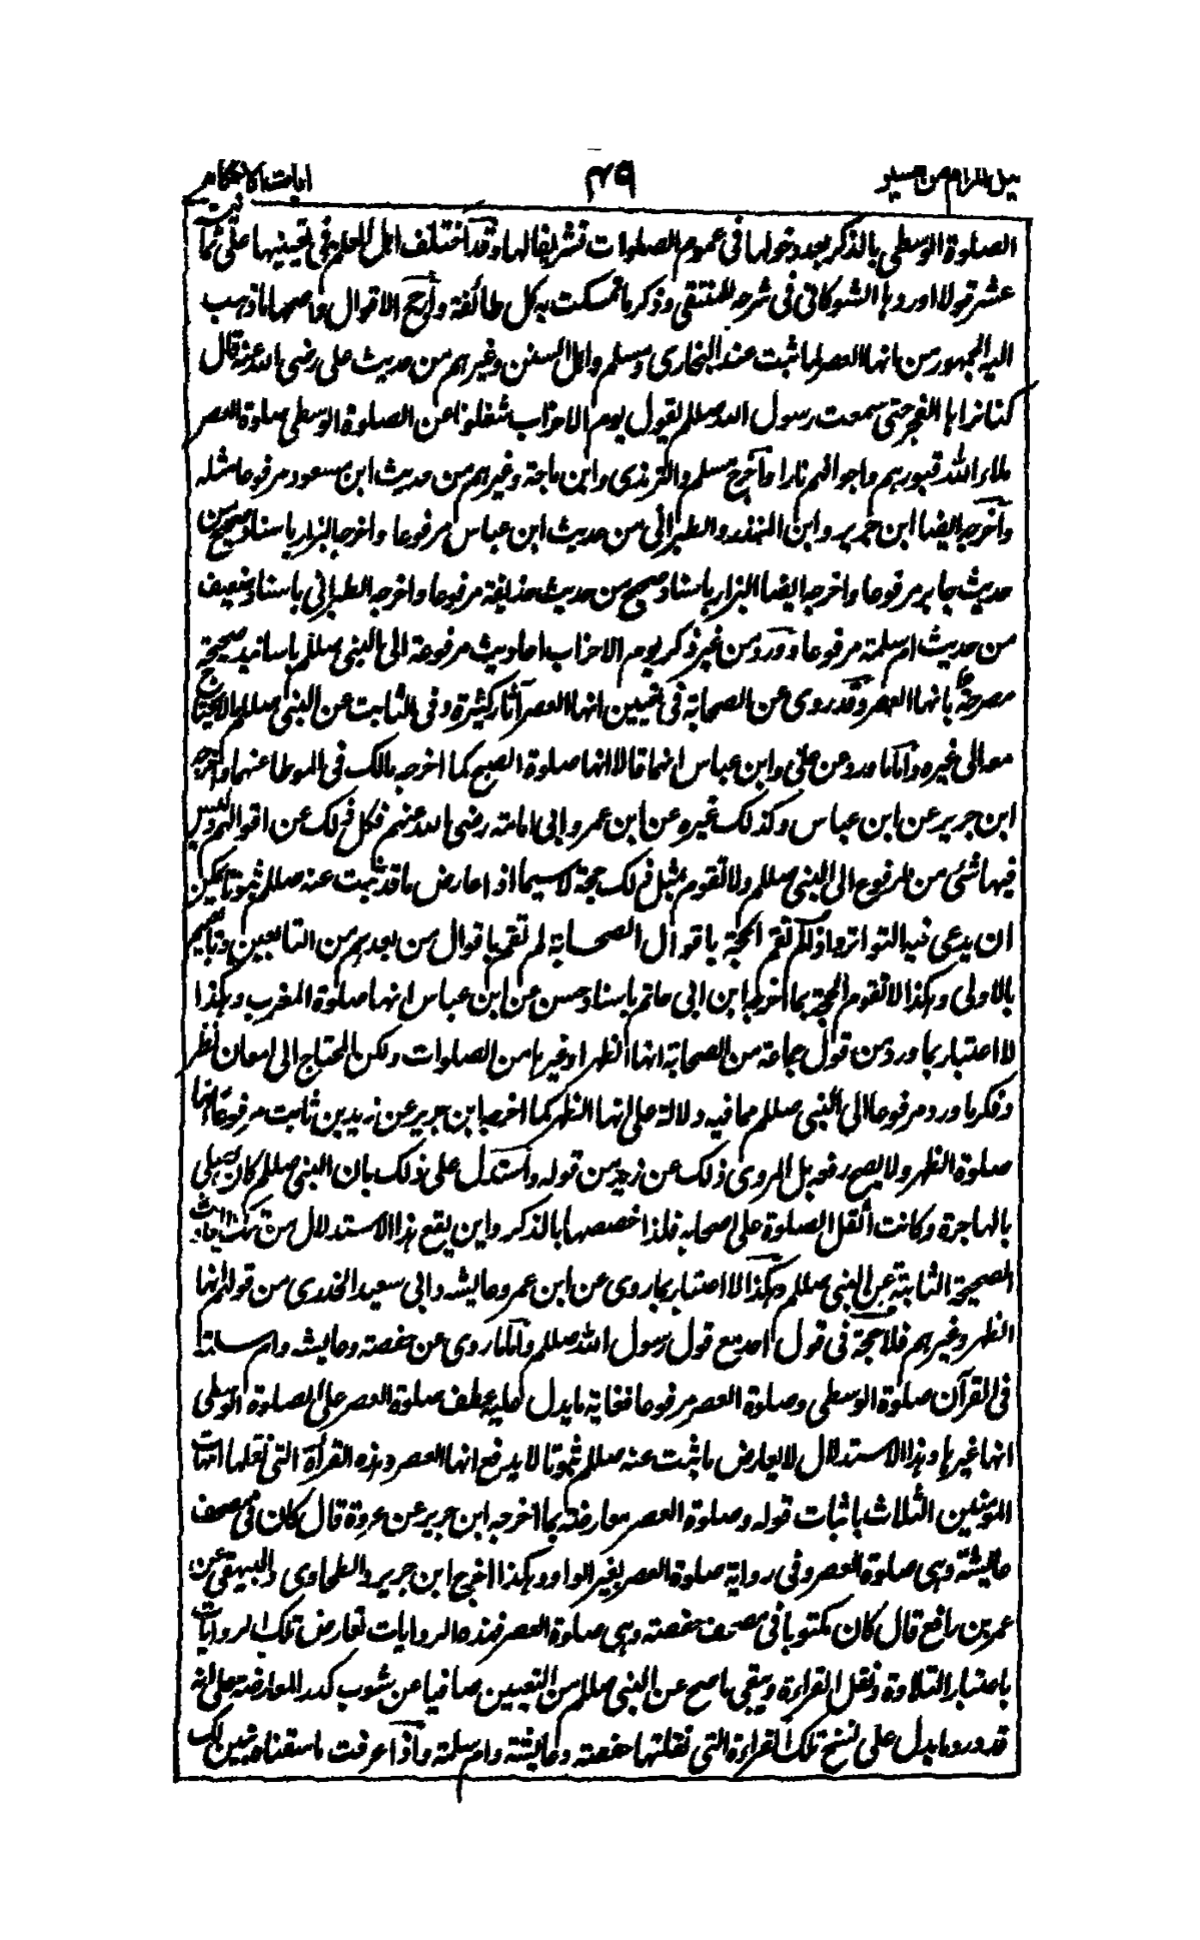 نيل المرام من تفسير
٤٩
ايات الاحكام
الصلوة الوسطى بالذكر بعد دخولها فى عموم الصلوات تشريفا لها وقد اختلف اهل العلم فى تعيينها على ثمانية
عشر قولا اوردها الشوكانى فى شرحه للمنتقى وذكر ما تمسكت به كل طائفة وارجح الاقوال واصحها ما ذهب
اليه الجمهور من انها العصر لما ثبت عند البخارى ومسلم واهل السنن وغيرهم من حديث على رضى الله عنه قال
كنا نراها الفجر حتى سمعت رسول الله صللم يقول يوم الاحزاب شغلونا عن الصلوة الوسطى صلوة العصر
ملا الله قبورهم واجوافهم نارا واخرج مسلم والترمذى وابن ماجة وغيرهم من حديث ابن مسعود مرفوعا مثله
واخرجه ايضا ابن جرير وابن المنذر والطبرانى من حديث ابن عباس مرفوعا واخرجه البزار باسناد صحيح من
حديث جابر مرفوعا واخرجه ايضا البزار باسناد صحيح من حديث حذيفة مرفوعا واخرجه الطبرانى باسناد ضعيف
من حديث ام سلمة مرفوعا وورد من غير ذكر يوم الاحزاب احاديث مرفوعة الى النبى صللم باسانيد صحيحة
مصرحة بانها العصر وقد روى عن الصحابة فى تعيين انها العصر آثار كثيرة وفى الثابت عن النبى صللم ما لا يحتاج
معه الى غيره واما ما ورد عن على وابن عباس انهما قالا انها صلوة الصبح كما اخرجه مالك فى الموطا عنهما واخرجه
ابن جرير عن ابن عباس وكذلك غيره عن ابن عمر وابى امامة رضى الله عنهم فكل ذلك عن اقوالهم وليس
فيها شئى من المرفوع الى النبى صللم ولا تقوم بمثل ذلك حجة لا سيما اذا عارض ما قد ثبت عنه صللم ثبوتا يمكن
ان يدعى فيه التواتر واذا لم تقم الحجة باقوال الصحابة لم تقم باقوال من بعدهم من التابعين وتابعيهم
بالاولى وهكذا لا تقوم الحجة بما اخرجه ابن ابى حاتم باسناد حسن عن ابن عباس انها صلوة المغرب وهكذا
لا اعتبار بما ورد من قول جماعة من الصحابة انها الظهر او غيرها من الصلوات ولكن المحتاج الى امعان نظر
وفكر ما ورد مرفوعا الى النبى صللم مما فيه دلالة على انها الظهر كما اخرجه ابن جرير عن زيد بن ثابت مرفوعا انها
صلوة الظهر ولا يصح رفعه بل المروى ذلك عن زيد من قوله واستدل على ذلك بان النبى صللم كان يصلى
بالهاجرة وكانت اثقل الصلوة على اصحابه فلذا خصصها بالذكر واين يقع هذا الاستدلال من تلك الاحاديث
الصحيحة الثابتة عن النبى صللم وهكذا لا اعتبار بما روى عن ابن عمر وعايشه وابى سعيد الخدرى من قولهم انها
الظهر وغيرهم فلا حجة فى قول احد مع قول رسول الله صللم واما ما روى عن حفصة وعايشه وام سلمة
فى القرآن صلوة الوسطى وصلوة العصر مرفوعا فغاية ما يدل عليه عطف صلوة العصر على الصلوة الوسطى
انها غيرها وهذا الاستدلال لا يعارض ما ثبت عنه صللم ثبوتا لا يدفع انها العصر وهذه القراءة التى نقلها امهات
المومنين الثلاث باثبات قوله وصلوة العصر معارضة بما اخرجه ابن جرير عن عروة قال كان فى مصحف
عايشة وهى صلوة العصر وفى رواية صلوة العصر بغير الواو وهكذا اخرج ابن جرير والطحاوى والبيهقى عن
عمر بن رافع قال كان مكتوبا فى مصحف حفصة وهى صلوة العصر فهذه الروايات تعارض تلك الروايات
باعتبار التلاوة ونقل القراءة ويبقى ما صح عن النبى صللم من التعيين صافيا عن شوب كدر المعارضة على انه
قد ورد ما يدل على نسخ تلك القراءة التى نقلتها حفصة وعايشة وام سلمة واذا عرفت ما سقناه تبين لك